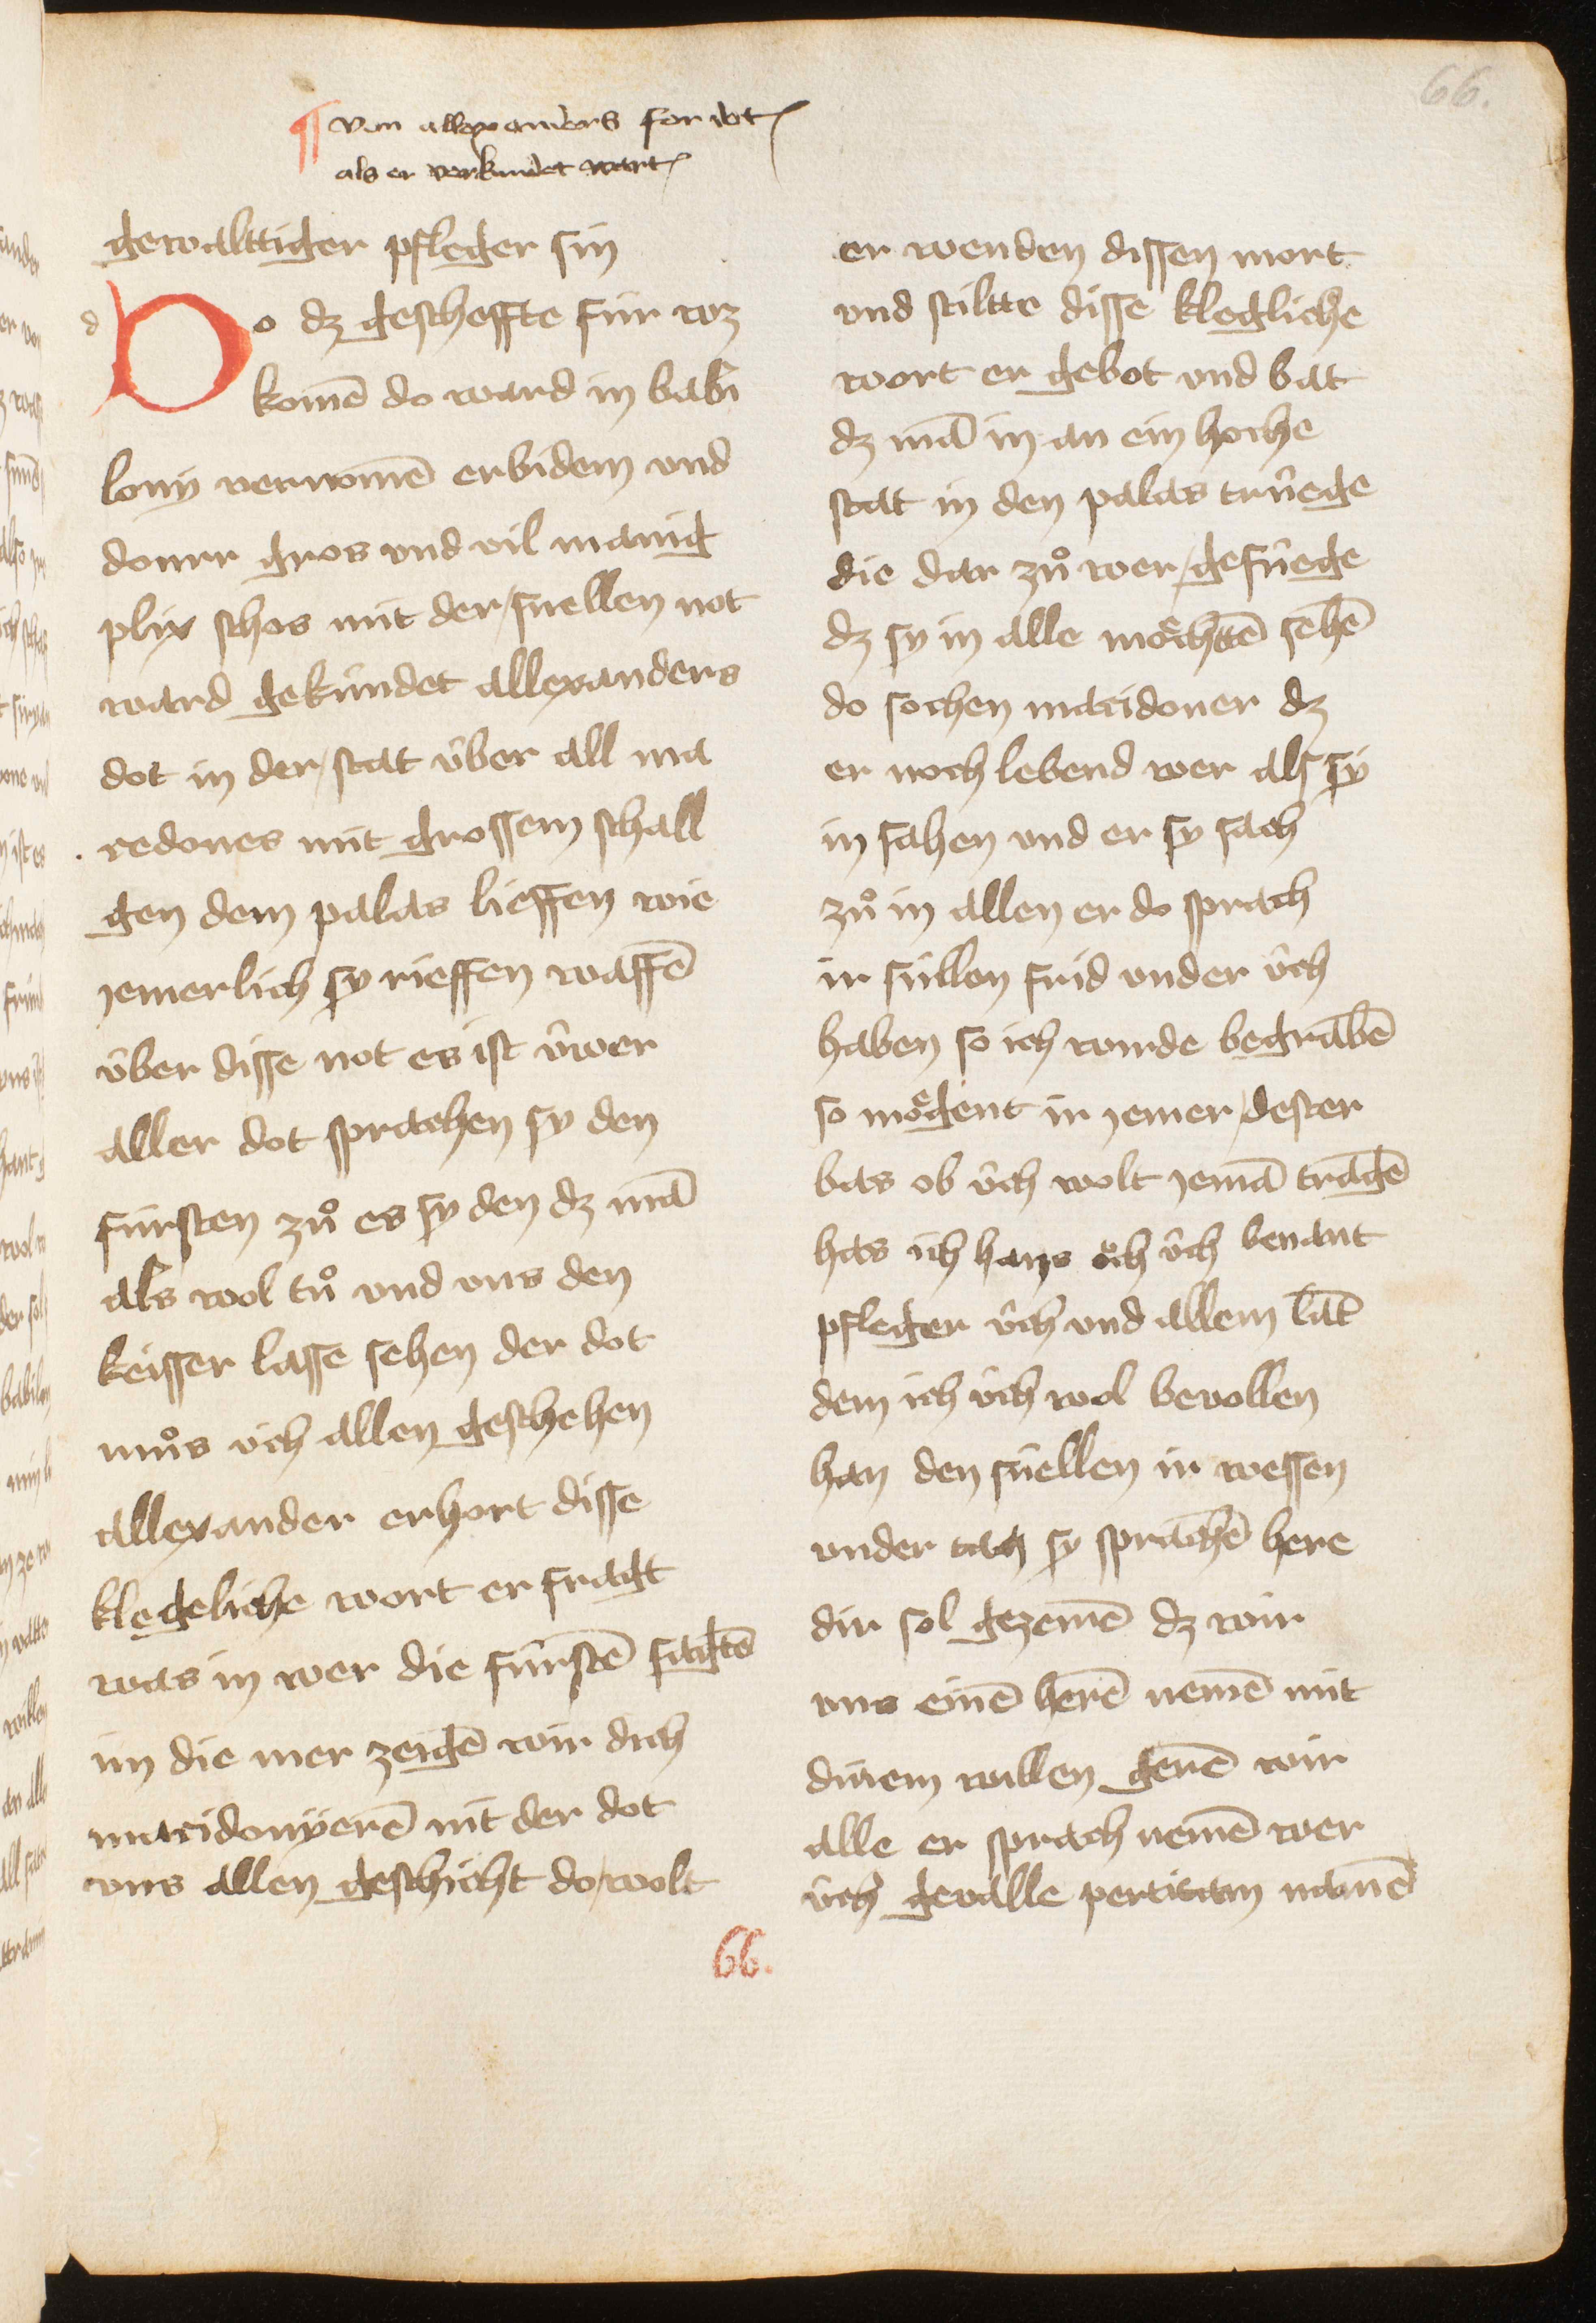 66.
¶ von allexanders forcht
als er verkundet wart
gewalttiger pfleger sin
d
Do dz gescheffte für wz
komē do ward in babi
lony vernomē erbidem vnd
donrr gros vnd vil manig
plix schos mit der snellen not
ward gekündet allexanders
dot in der stat über all ma
cedones mit grossem schall
gen dem palas lieffen wie
jemerlich sy rieffen waffē
über disse not es ist üwer
aller dot sprachen sy den
fürsten zuͦ es sy den dz mā
als wol tuͦ vnd vns den
keisser lasse sehen der dot
muͦs üch allen geschehen
allexander erhort disse
klegeliche wort er fragt
was in wer die fürstē sagtē
im die mer zeigē wir dich
macidonyerē nit der dot
vns allen geschicht do wolt
er wenden dissen mort
vnd stiltte disse klegliche
wort er gebot vnd bat
dz mā in an ein hoche
stat in den palas trüege
die dar zuͦ wer gefüege
dz sy in alle moͤchttē sehē
do sochen macidoner dz
er noch lebend wer als sy
in sahen vnd er sy sach
zuͦ in allen er do sprach
ir süllen frid vnder üch
haben so ich wurde begrabē
so moͤgent ir jemer dester
bas ob üch wolt jemā tragē
has ich hans och üch benant
pfleger üch vnd allem lāt
dem ich üch wol bevollen
han den süellen ir wessen
vnder tan sy sprachē here
dir sol gezemē dz wir
vns einē herē nemē mit
dinem willen gerē wir
alle er sprach nemē wer
üch gevalle perticam namē
66.